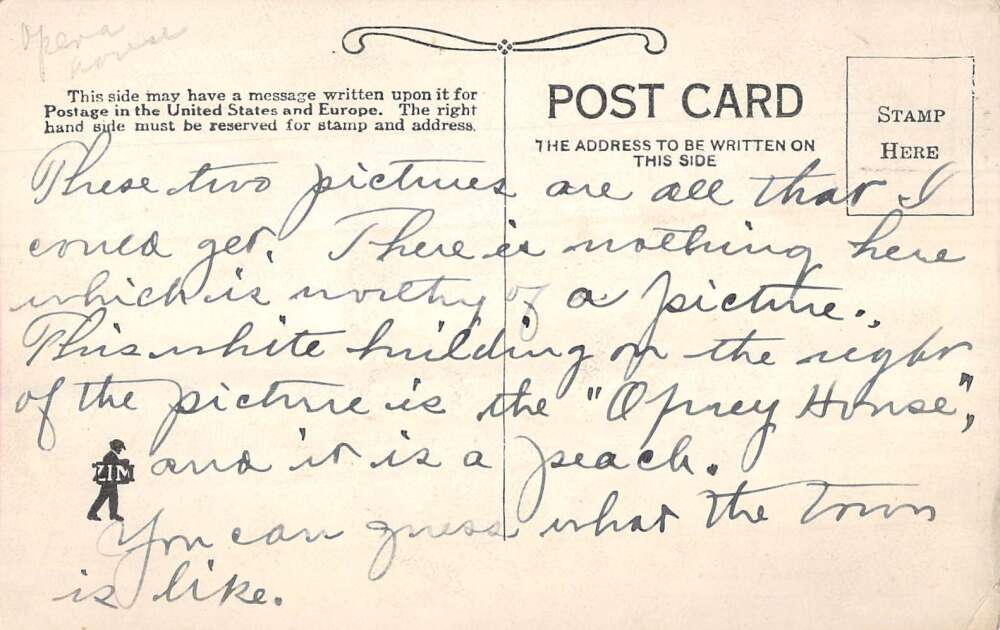 Opera
House
This side may have a message written upon it for
Postage in the United States and Europe. The right
hand side must be reserved for stamp and address.
POST CARD
THE ADDRESS TO BE WRITTEN ON
THIS SIDE
STAMP
HERE
These two pictures are all that I
could get. There is nothing here
which is worthy of a picture.
This white building on the right
of the picture is the "Oprey House",
and it is a peach.
ZIM
You can guess what the town
is like.